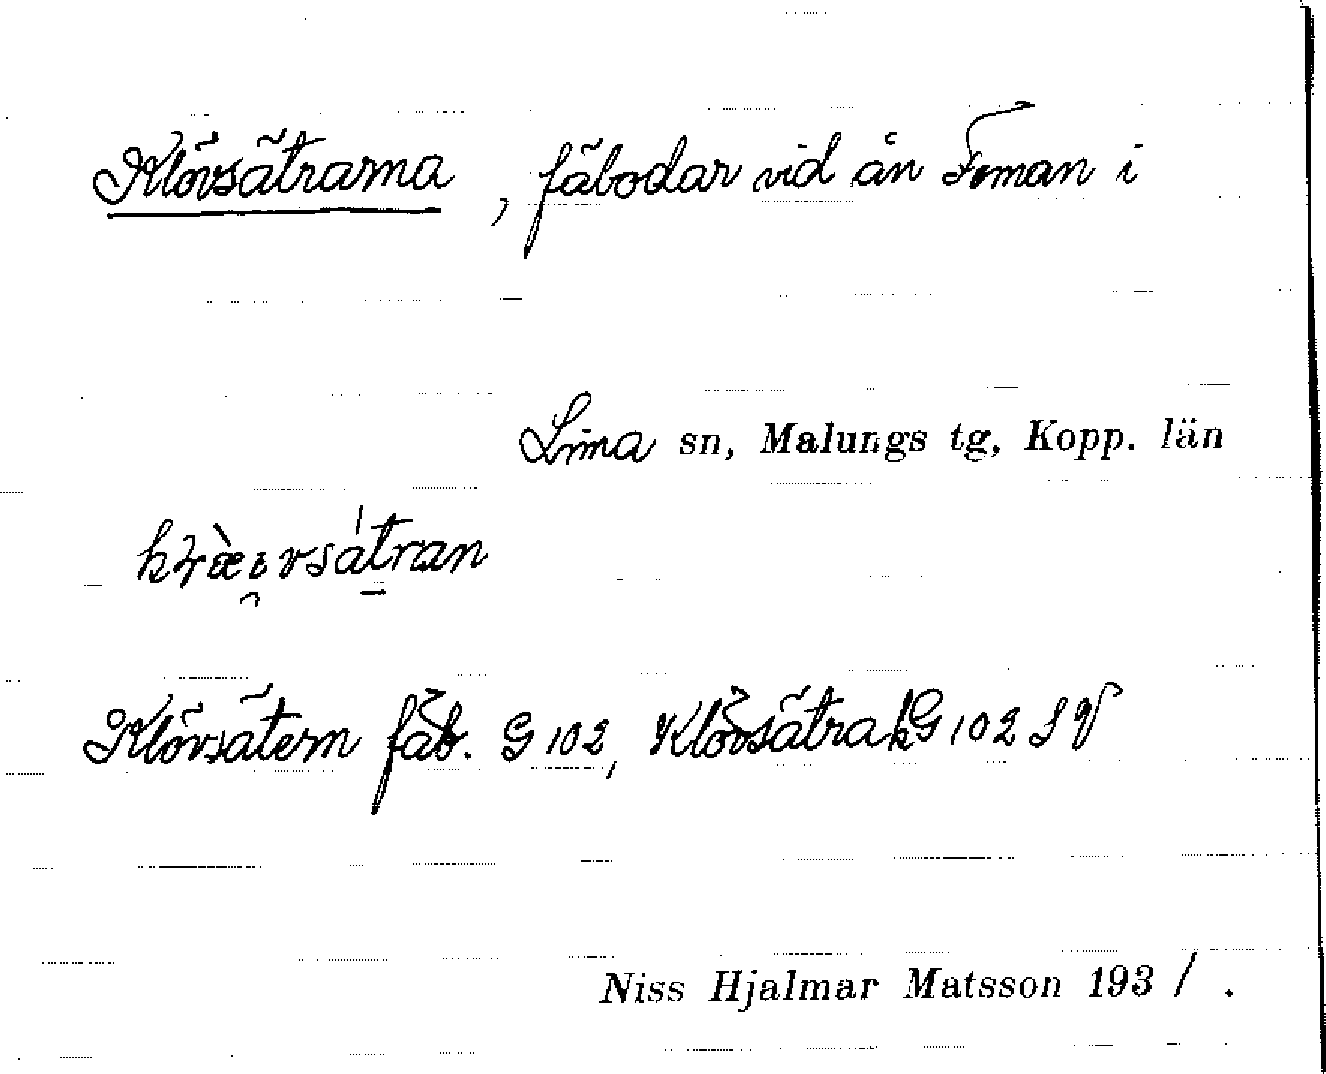 Klövsätrarna, fäbodar vid ån Fəman i
Lima sn, Malungs tg, Kopp. län
Klövsätern fäb. G 102, Klövsätrak G 102 SV
Niss Hjalmar Matsson 193/.